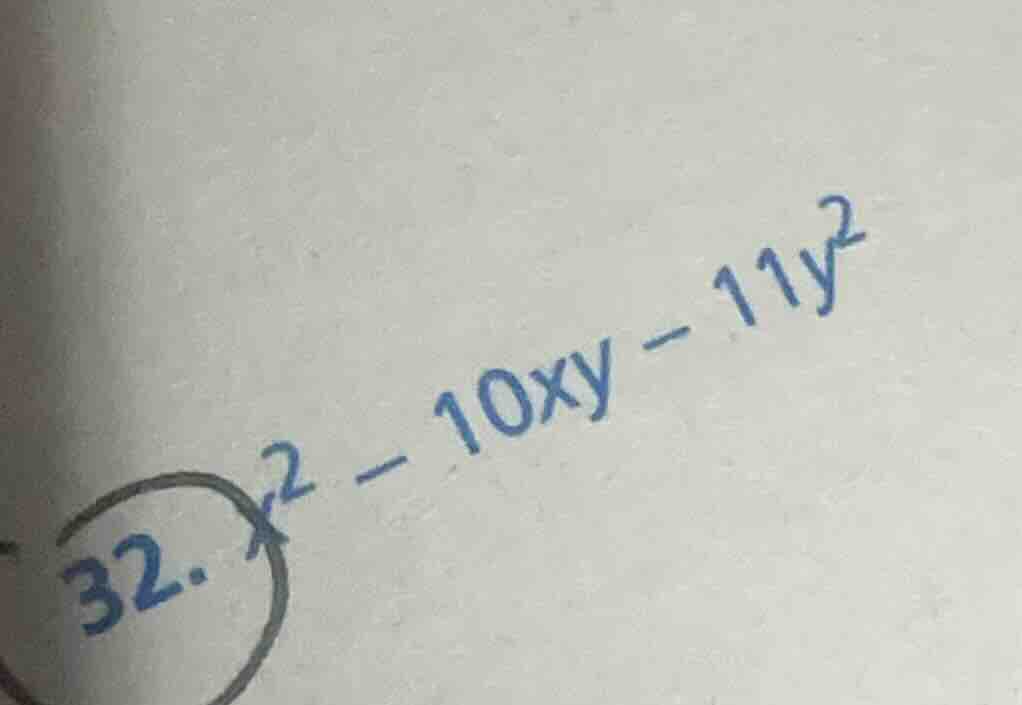 32. x² – 10xy – 11y²